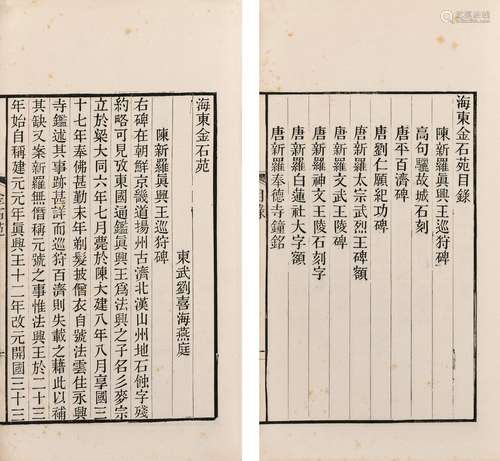 海東金石苑目錄
陳新羅眞興王巡狩碑
高句驪故城石刻
唐平百濟碑
唐劉仁願紀功碑
唐新羅太宗武烈王碑額
唐新羅文武王陵碑
唐新羅神文王陵石刻字
唐新羅白蓮社大字額
唐新羅奉德寺鐘銘
目錄
海東金石苑
東武劉喜海燕庭
陳新羅眞興王巡狩碑
右碑在朝鮮京畿道揚州古濟北漢山州地石蝕字殘
約略可見攷東國通鑑眞興王爲法興之子名彡麥宗
立於梁大同六年七月薨於陳大建八年八月享國三
十七年奉佛甚勤末年剃髮披僧衣自號法雲住永興
寺鑑述其事跡甚詳而巡狩百濟則失載之藉此以補
其缺又案新羅無僭稱元號之事惟法興王於二十三
年始自稱建元元年眞興王十二年改元開國三十三